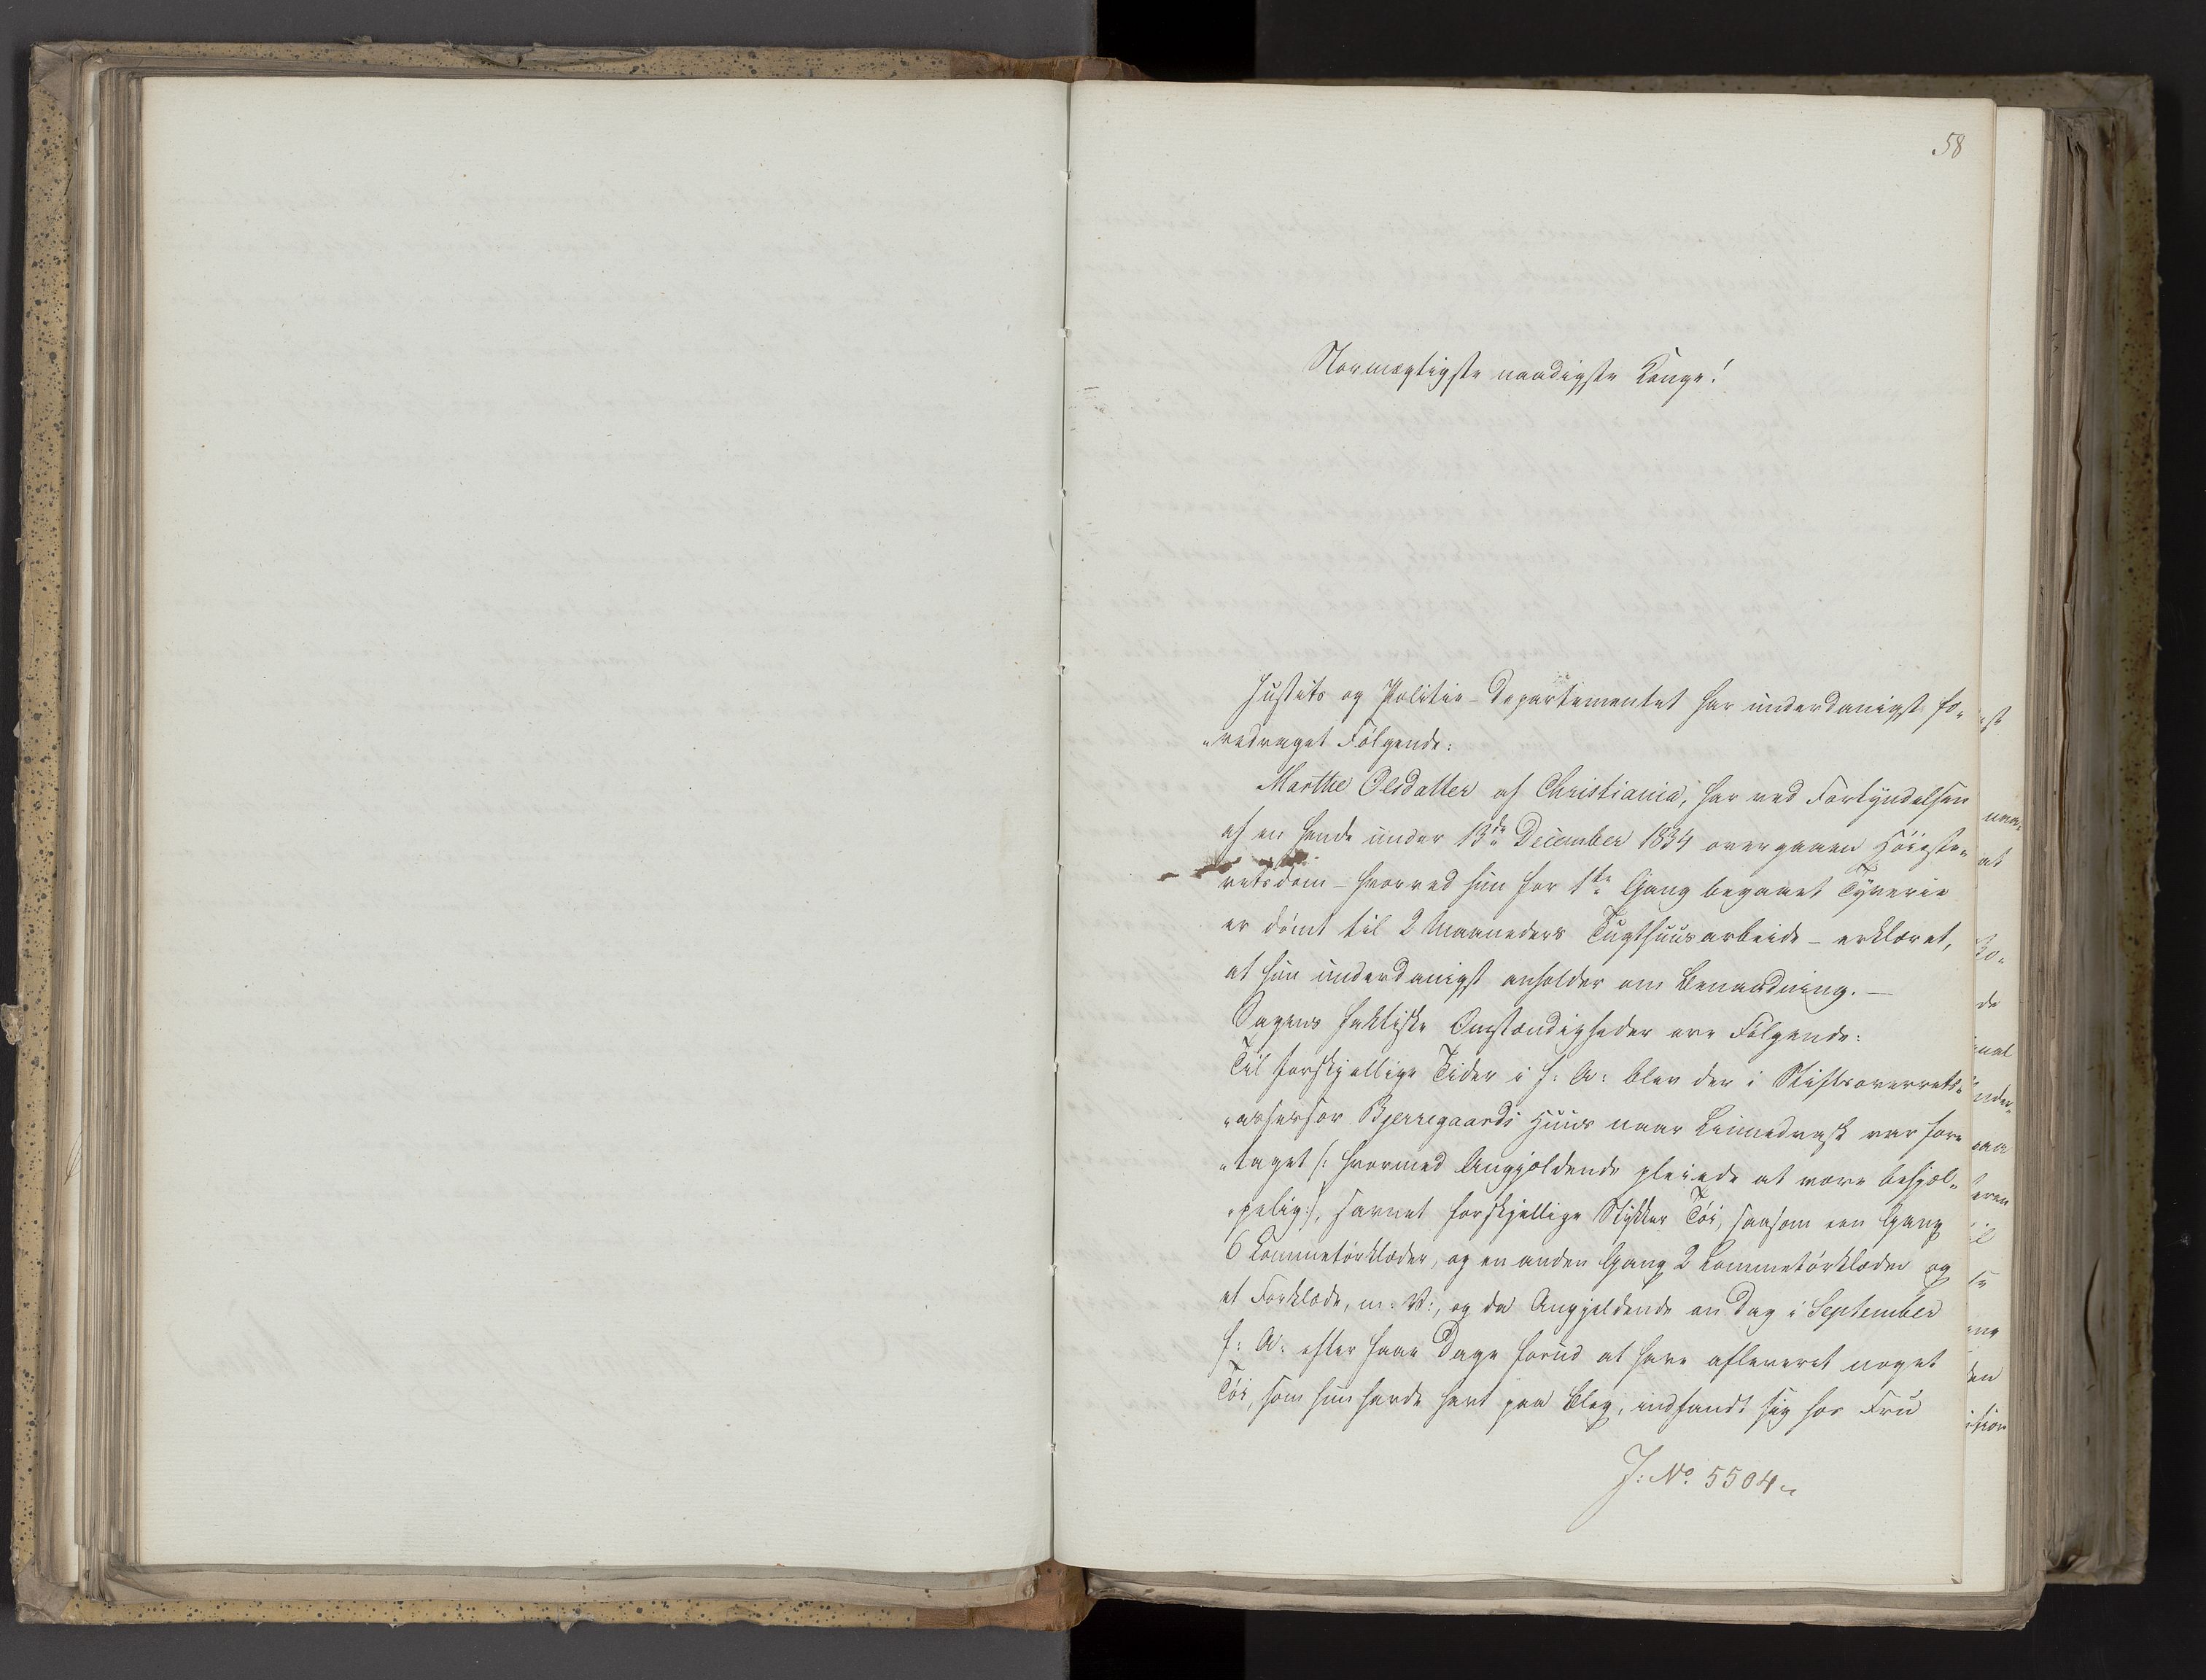 58
Stormægtigste naadigste Konge!
Justits og Politie-Departementet har underdanigst fo-
"redraget Følgende:
Marthe Olsdatter af Christiania, har ved Forkyndelsen
af en hende under 13de December 1834 overgaaen Høieste-
retsdom - hvorved hun for 1ste Gang begaaet Tyverie
er dømt til 2 Maaneders Tugthuusarbeide - erklæret,
at hun underdanigst anholder om Benaadning. -
Sagens faktiske Omstændigheder ere Følgende:
Til forskjellige Tider i f: A: blev der i Stiftsoverrets-
"assessor Bjerregaards Huus naar Linnedvask var fore
"taget /: hvormed Angjældende pleiede at være behjæl-
"pelig:/, savnet forskjellige Stykker Tøi, saasom een Gang
6 Lommetørklæder, og en anden Gang 2 Lommetørklæder og
et Forklæde, m: V:, og da Angjeldende en Dag i September
f: A: efter faae Dage forud at have afleveret noget
Tøi, som hun havde havt paa Bleg, indfandt sig hos Fru
J: No 5504